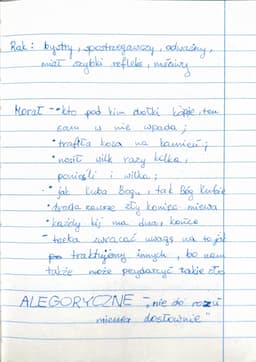 Rak: bystry, spostrzegawczy, odważny,
miał szybki refleks, mściwy
Morał - "kto pod kim dołki kopie, ten
sam w nie wpada;
• trafiła kosa na kamień;
• nosił wilk razy kilka,
ponieśli i wilka;
• jak Kuba Bogu, tak Bóg Kubie
• zawsze zły koniec miewa
• każdy kij ma dwa końce
- trzeba zwracać uwagę na to jak
traktujemy innych, bo nam
także może przydarzyć takie zło
ALEGORYCZNE - "nie do
dosłownie"